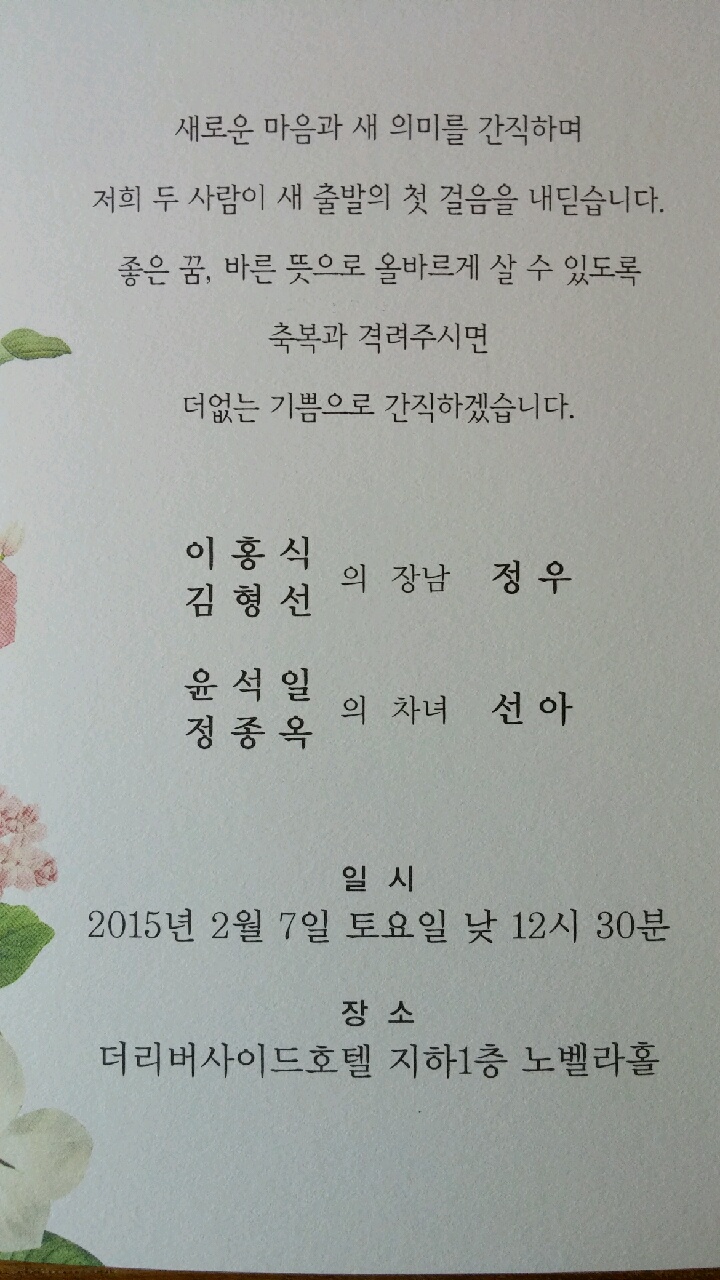 새로운 마음과 새 의미를 간직하며
저희 두 사람이 새 출발의 첫 걸음을 내딛습니다.
좋은 꿈, 바른 뜻으로 올바르게 살 수 있도록
축복과 격려주시면
더없는 기쁨으로 간직하겠습니다.
이홍식
김형선 의 장남 정우
윤석일
정종옥 의 차녀 선아
일시
2015년 2월 7일 토요일 낮 12시 30분
장소
더리버사이드호텔 지하1층 노벨라홀